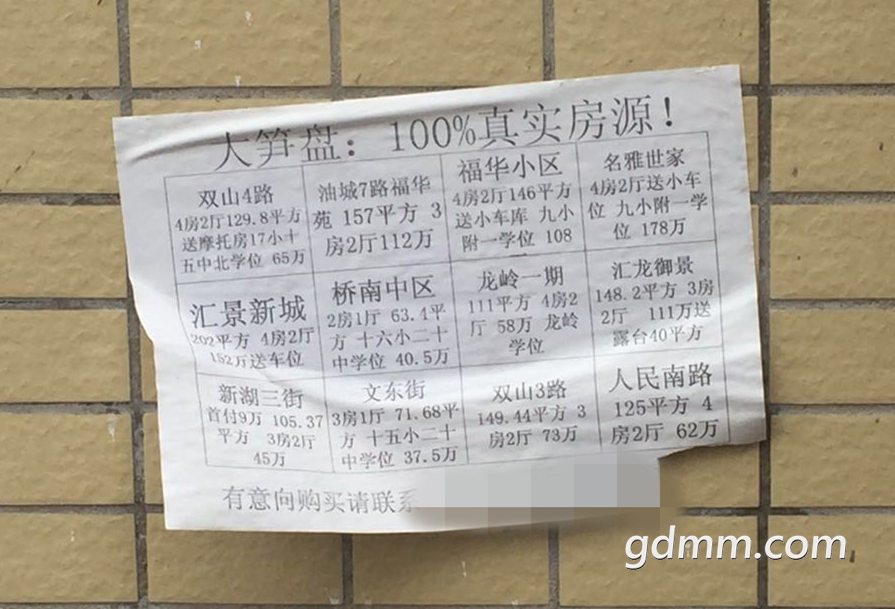 大笋盘：100%真实房源！
双山4路
4房2厅129.8平方
送摩托房17小十
五中北学位 65万
油城7路福华
苑 157平方 3
房2厅112万
福华小区
4房2厅146平方
送小车库 九小
附一学位 108
名雅世家
4房2厅送小车
位 九小附一学
位 178万
汇景新城
202平方 4房2厅
152万送车位
桥南中区
2房1厅 63.4平
方 十六小二十
中学位 40.5万
龙岭一期
111平方 4房2
厅 58万 龙岭
学位
汇龙御景
148.2平方 3房
2厅 111万送
露台40平方
新湖三街
首付9万 105.37
平方 3房2厅
45万
文东街
3房1厅 71.68平
方 十五小二十
中学位 37.5万
双山3路
149.44平方 3
房2厅 73万
人民南路
125平方 4
房2厅 62万
有意向购买请联系
gdmm.com